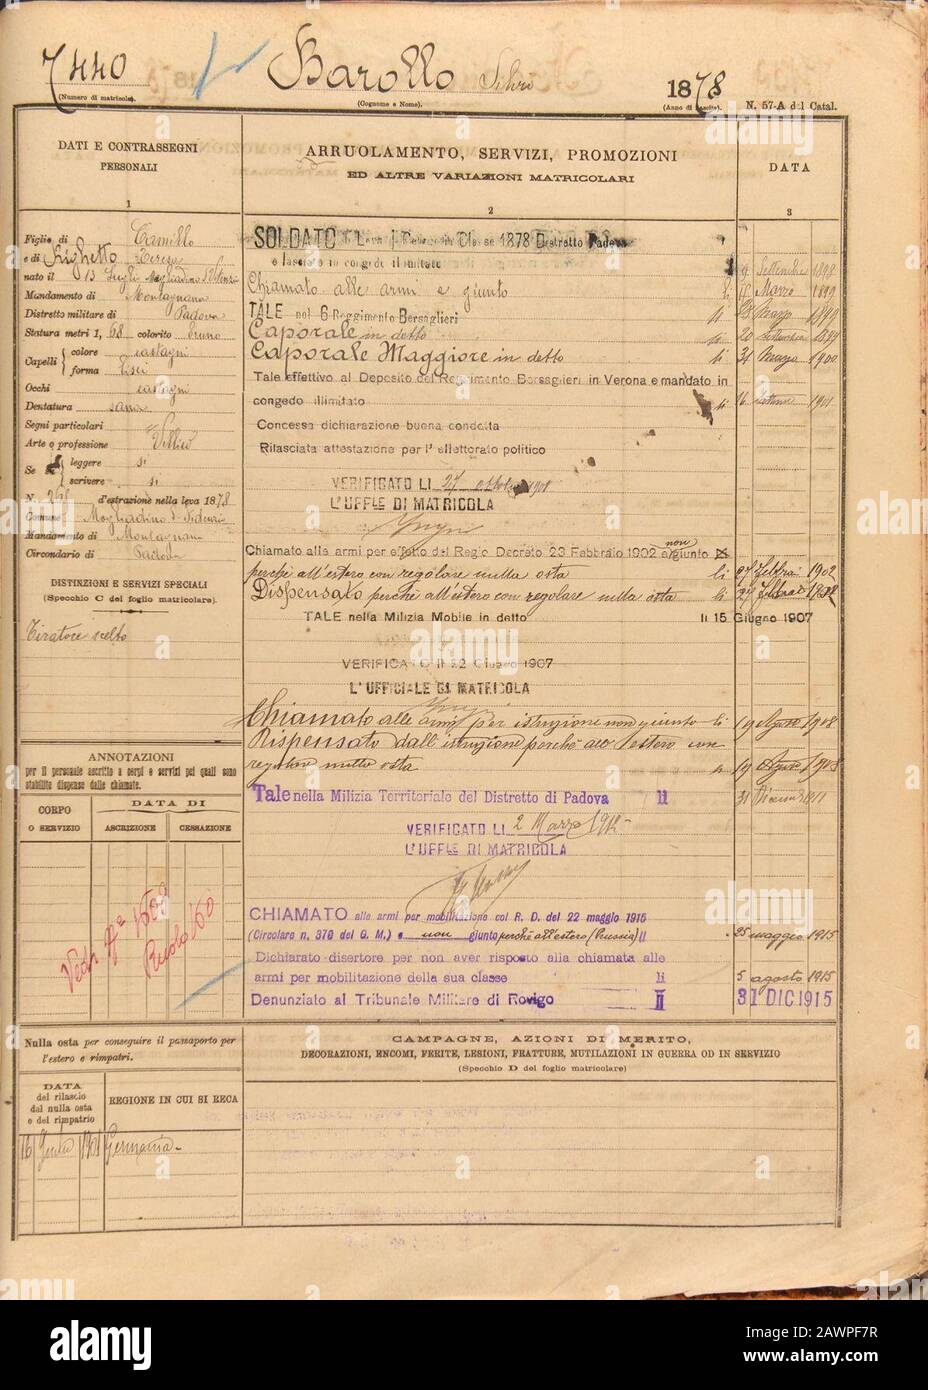 7440 Barollo Silvio 1878
(Numero di matricola). (Cognome e Nome). (Anno di nascita). N. 57-A del Catal.
DATI E CONTRASSEGNI
PERSONALI
1
Figlio di Camillo
e di Righetto Teresa
nato il 13 Luglio Megliadino S. Fidenzio
Mandamento di Montagnana
Distretto militare di Padova
Statura metri 1, 68 colorito bruno
Capelli colore castagni
forma lisci
Occhi castagni
Dentatura sana
Segni particolari
Arte o professione Villico
Se sa leggere si
scrivere si
N. d'estrazione nella leva 1878
Comune Megliadino S. Fidenzio
Mandamento di Montagnana
Circondario di Padova
DISTINZIONI E SERVIZI SPECIALI
(Specchio C del foglio matricolare).
Tiratore scelto
ANNOTAZIONI
per il personale ascritto a corpi e servizi pei quali sono
stabilite dispense dalle chiamate.
CORPO
O SERVIZIO
DATA DI
ASCRIZIONE CESSAZIONE
Ruolo 160
Nulla osta per conseguire il passaporto per
l'estero e rimpatri.
DATA
del rilascio
del nulla osta
e del rimpatrio
REGIONE IN CUI SI RECA
16 1901 Germania
ARRUOLAMENTO, SERVIZI, PROMOZIONI
ED ALTRE VARIAZIONI MATRICOLARI
2
DATA
3
SOLDATO Leva I Categoria Classe 1878 Distretto Padova
e lasciato in congedo illimitato li 9 Settembre 1898
Chiamato alle armi e giunto li Marzo 1899
TALE nel 6 Reggimento Bersaglieri li Marzo 1899
Caporale in detto li 20 Settembre 1899
Caporale Maggiore in detto li 31 Marzo 1900
Tale effettivo al Deposito del Reggimento Bersaglieri in Verona e mandato in
congedo illimitato li 16 Settembre 1901
Concessa dichiarazione buona condotta
Rilasciata attestazione per l'elettorato politico
VERIFICATO LI 27 ottobre 1901
L'UFF.LE DI MATRICOLA
Chiamato alle armi per effetto del Regio Decreto 23 Febbraio 1902 e non giunto
perchè all'estero con regolare nulla osta li 27 Febbrai 1902
Dispensato perchè all'estero con regolare nulla osta li 27 Febbrai 1902
TALE nella Milizia Mobile in detto li 15 Giugno 1907
VERIFICATO li 22 Giugno 1907
L'UFFICIALE DI MATRICOLA
Chiamato alle armi per istruzione non giunto li 19 Agosto 1908
Dispensato dall'istruzione perchè all'estero con
regolare nulla osta li 19 Agosto 1908
Tale nella Milizia Territoriale del Distretto di Padova li 31 Dicembre 1911
VERIFICATO LI 2 Marzo 1912
L'UFF.LE DI MATRICOLA
CHIAMATO alle armi per mobilitazione col R. D. del 22 maggio 1915
(Circolare n. 370 del G. M.) e non giunto perchè all'estero (Prussia) li 25 maggio 1915
Dichiarato disertore per non aver risposto alla chiamata alle
armi per mobilitazione della sua classe li 5 agosto 1915
Denunziato al Tribunale Militare di Rovigo li 31 DIC. 1915
CAMPAGNE, AZIONI DI MERITO,
DECORAZIONI, ENCOMI, FERITE, LESIONI, FRATTURE, MUTILAZIONI IN GUERRA OD IN SERVIZIO
(Specchio D del foglio matricolare)
alamy
Image ID: 2AWPF7R
www.alamy.com